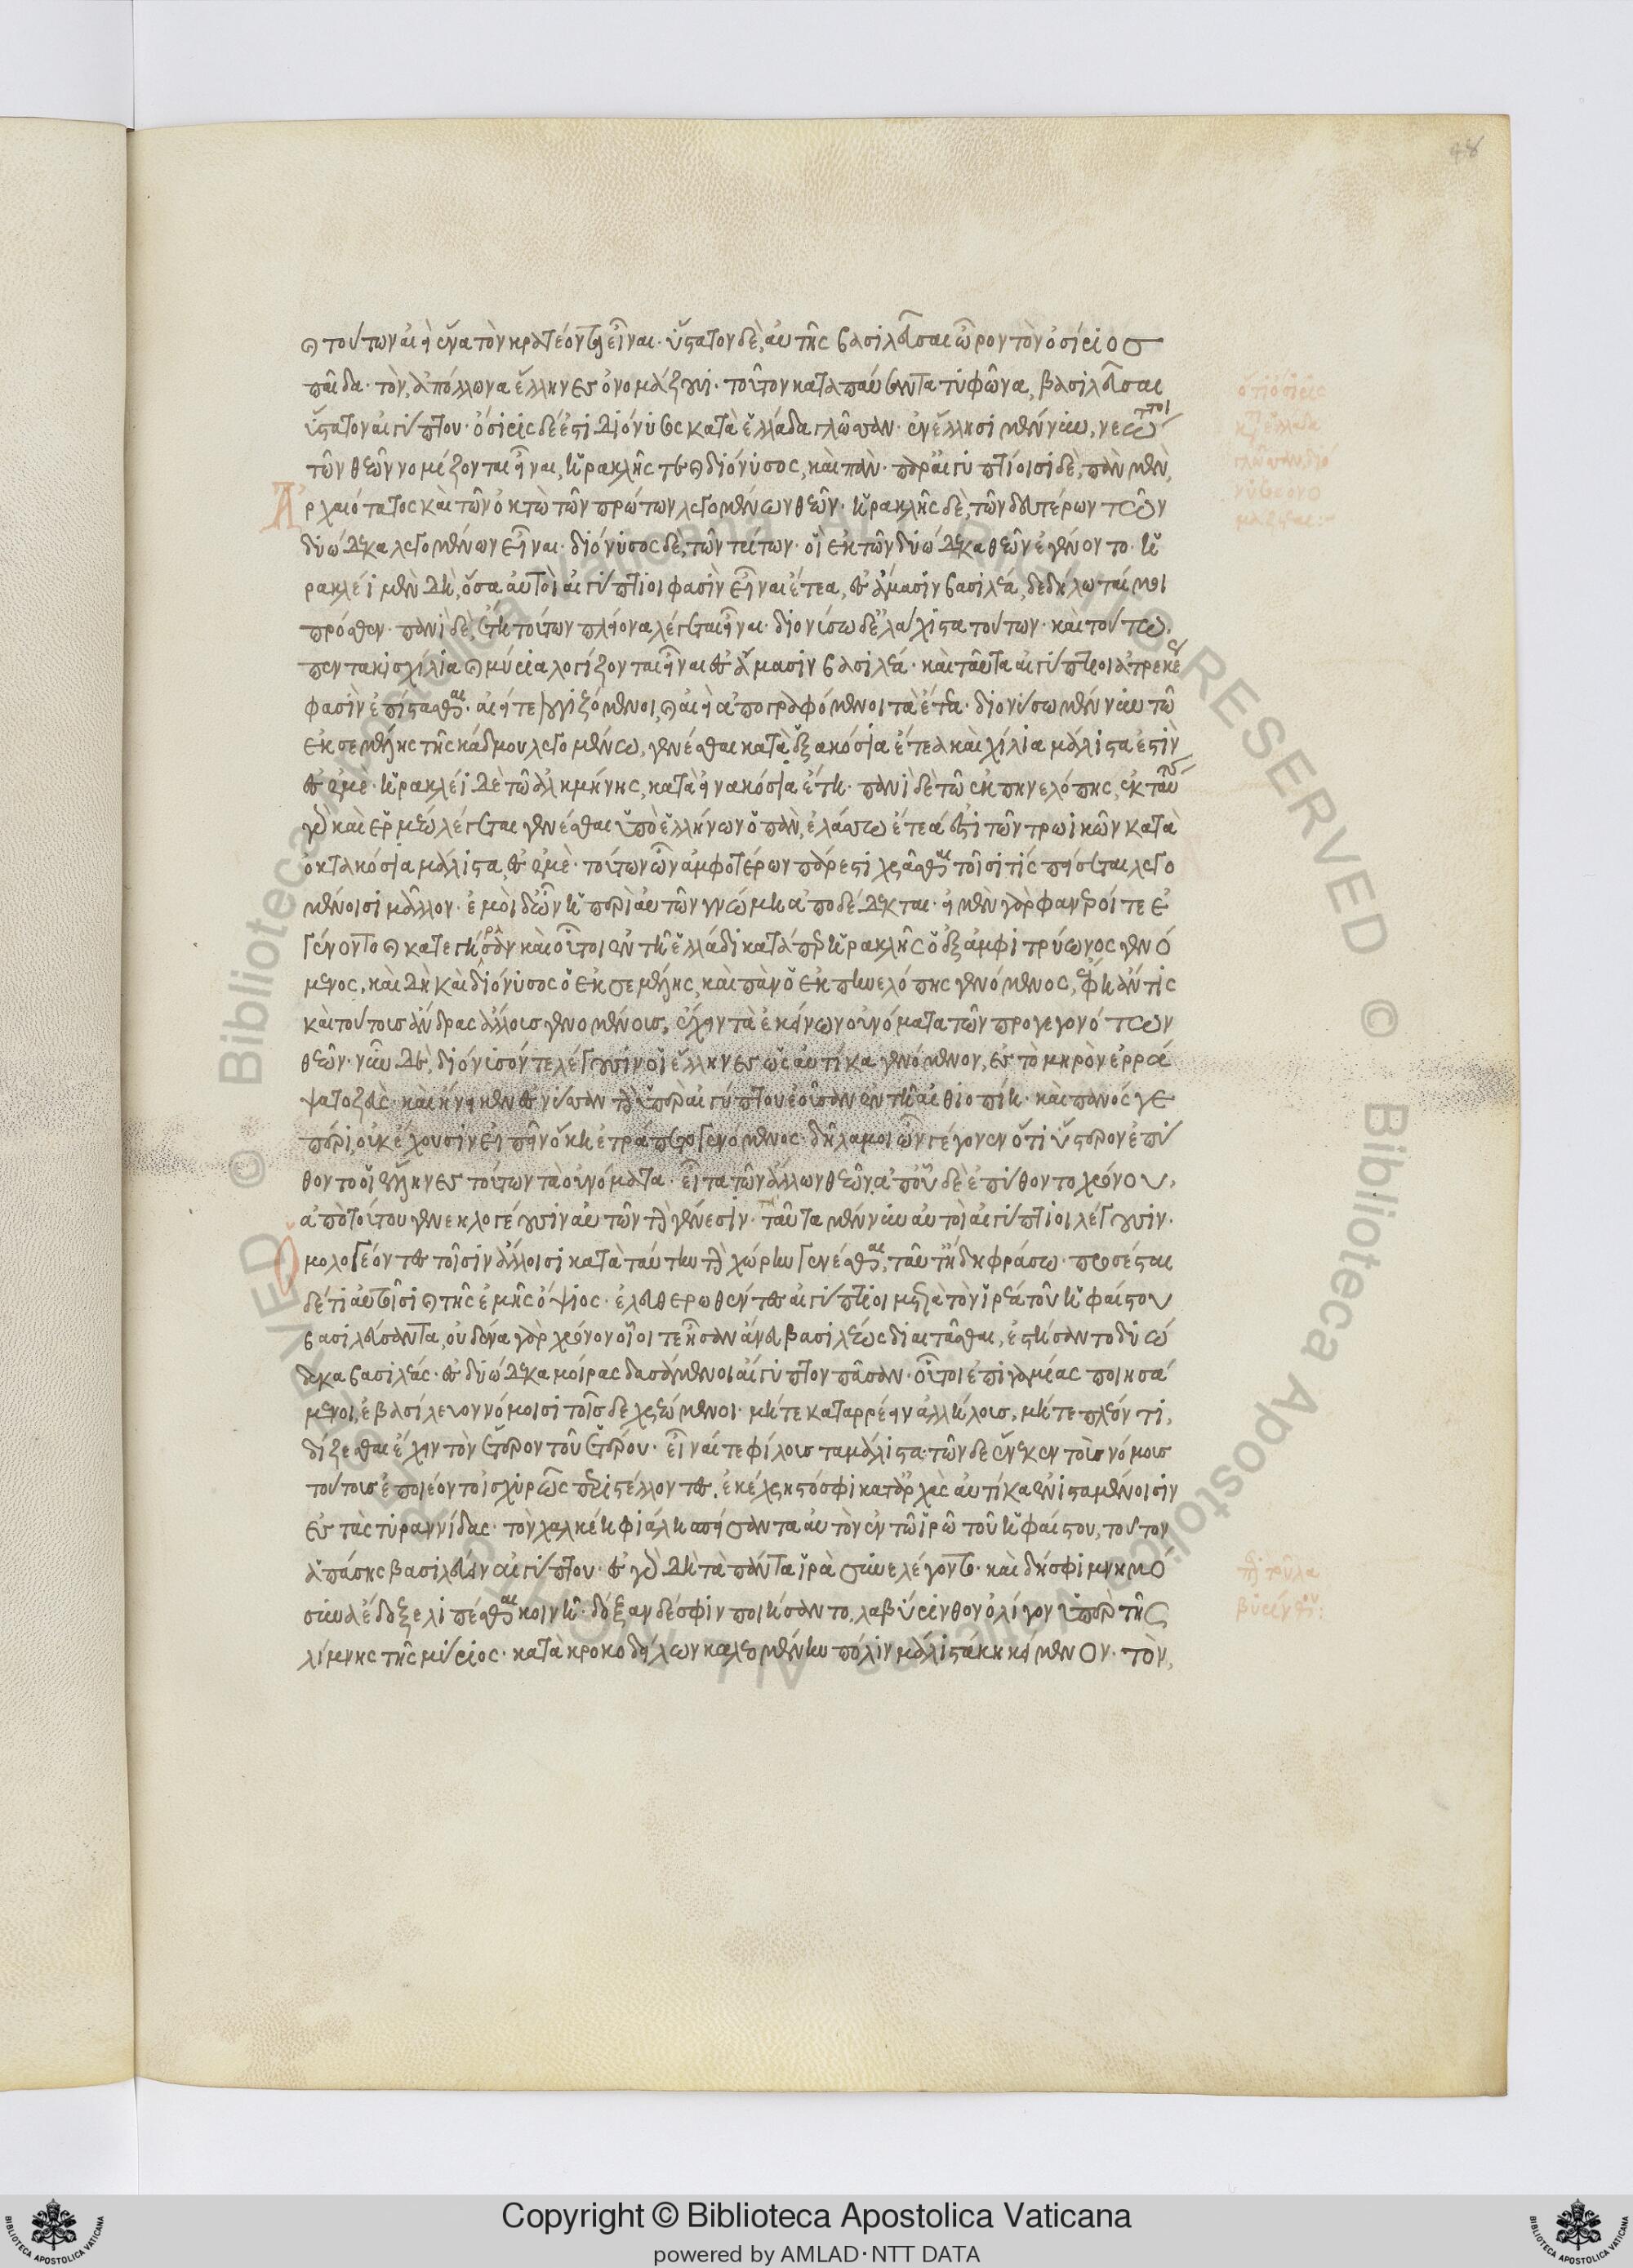 48
καὶ τούτων αἰεὶ ἕνα τὸν κρατέοντα εἶναι· ὕστατον δὲ, αὐτῆς βασιλεῦσαι ὦρον τὸν ὀσίριος
παῖδα· τὸν, ἀπόλλωνα ἕλληνες ὀνομάζουσι· τοῦτον καταπαύσαντα τυφῶνα, βασιλεῦσαι
ὕστατον αἰγύπτου· ὄσιρις δέ ἐστι διόνυσος κατὰ ἑλλάδα γλῶσσαν· ἐν ἕλλησι μέν νυν, νεώτατοι
τῶν θεῶν νομίζονται εἶναι, ἡρακλῆς τε καὶ διόνυσος, καὶ πάν· παρ' αἰγυπτίοισι δὲ, πὰν μὲν,
ἀρχαιότατος καὶ τῶν ὀκτὼ τῶν πρώτων λεγομένων θεῶν· ἡρακλῆς δὲ, τῶν δευτέρων τῶν
δυώδεκα λεγομένων εἶναι· διόνυσος δὲ, τῶν τρίτων· οἳ ἐκ τῶν δυώδεκα θεῶν ἐγένοντο· ἡ
ρακλέϊ μὲν δὴ, ὅσα αὐτοὶ αἰγύπτιοι φασὶν εἶναι ἔτεα, ἐς ἄμασιν βασιλέα, δεδήλωταί μοι
πρόσθεν· πανὶ δὲ, ἔτι τούτων πλείονα λέγεται εἶναι· διονύσω δ' ἐλάχιστα τούτων· καὶ τούτω
πεντακισχίλια καὶ μύρια λογίζονται εἶναι ἐς ἄμασιν βασιλέα· καὶ ταῦτα αἰγύπτιοι ἀτρεκέως
φασὶν ἐπίστασθαι· αἰεί τε λογιζόμενοι, καὶ αἰεὶ ἀπογραφόμενοι τὰ ἔτεα· διονύσω μέν νυν τῶ
ἐκ σεμέλης τῆς κάδμου λεγομένω, γενέσθαι κατὰ ἑξακόσια ἔτεα καὶ χίλια μάλιστα ἐστὶν
ἐς ἐμέ· ἡρακλέϊ δὲ τῶ ἀλκμήνης, κατὰ εἰνακόσια ἔτη· πανὶ δὲ τῶ ἐκ πηνελόπης, ἐκ ταύτης
γὰρ καὶ ἑρμέω λέγεται γενέσθαι ὑπὸ ἑλλήνων ὁ πὰν, ἐλάσσω ἔτεά ἐστι τῶν τρωικῶν κατὰ
ὀκτακόσια μάλιστα, ἐς ἐμὲ· τούτων ὦν ἀμφοτέρων πάρεστι χρᾶσθαι τοῖσί τις πείσεται λεγο
μένοισι μᾶλλον· ἐμοὶ δ' ὦν ἡ περὶ αὐτῶν γνώμη ἀποδέδεκται· εἰ μὲν γὰρ φανεροί τε ἐ
γένοντο καὶ κατεγήρασαν καὶ οὗτοι ἐν τῆ ἑλλάδι κατάπερ ἡρακλῆς ὁ ἐξ ἀμφιτρύωνος γενό
μενος, καὶ δὴ καὶ διόνυσος ὁ ἐκ σεμέλης, καὶ πὰν ὁ ἐκ πηνελόπης γενόμενος, ἔφη ἄν τις
καὶ τούτοις ἄνδρας ἄλλοις γενομένοις, ἔχειν τὰ ἐκείνων οὐνόματα τῶν προγεγονότων
θεῶν· νῦν δὲ, διόνυσόν τε λέγουσιν οἱ ἕλληνες ὡς αὐτίκα γενόμενον, ἐς τὸ μηρὸν ἐρρά
ψατο ζεὺς· καὶ ἤνεικεν ἐς νύσσαν τὴν ὑπὲρ αἰγύπτου ἐοῦσαν ἐν τῆ αἰθιοπίη· καὶ πανός γε
πέρι, οὐκ ἔχουσιν εἰπεῖν ὅκη ἐτράπετο γενόμενος· δῆλά μοι ὦν γέγονεν ὅτι ὕστερον ἐπύ
θοντο οἱ ἕλληνες τούτων τὰ οὐνόματα· εἶτα τῶν ἄλλων θεῶν· ἀπ' οὗ δὲ ἐπύθοντο χρόνου,
ἀπὸ τούτου γενεηλογέουσιν αὐτῶν τὴν γένεσιν· ταῦτα μέν νυν αὐτοὶ αἰγύπτιοι λέγουσιν·
ὁμολογέοντες τοῖσιν ἄλλοισι κατὰ ταύτην τὴν χώρην γενέσθαι, ταῦτ' ἤδη φράσω· προσέσται
δέ τι αὐτοῖσι καὶ τῆς ἐμῆς ὄψιος· ἐλευθερωθέντες αἰγύπτιοι μετὰ τὸν ἱρέα τοῦ ἡφαίστου
βασιλεύσαντα, οὐδένα γὰρ χρόνον οἷοί τε ἦσαν ἄνευ βασιλέως διαιτᾶσθαι, ἐστήσαντο δυώ
δεκα βασιλέας· ἐς δυώδεκα μοίρας δασάμενοι αἴγυπτον πᾶσαν· οὗτοι ἐπιγαμίας ποιησά
μενοι, ἐβασίλευον νόμοισι τοῖσδε χρεώμενοι· μήτε καταιρέειν ἀλλήλοις, μήτε πλέον τι,
δίζεσθαι ἔχειν τὸν ἕτερον τοῦ ἑτέρου· εἶναί τε φίλους τὰ μάλιστα· τῶνδε εἵνεκεν τοὺς νόμους
τούτους ἐποιέοντο ἰσχυρῶς περιστέλλοντες, ἐκέχρηστό σφι κατ' ἀρχὰς αὐτίκα ἐνισταμένοισιν
ἐς τὰς τυραννίδας· τὸν χαλκέη φιάλη σπείσαντα αὐτὸν ἐν τῶ ἱρῶ τοῦ ἡφαίστου, τοῦτον
ἁπάσης βασιλεύειν αἰγύπτου· ἐς γὰρ δὴ τὰ πάντα ἱρὰ συνελέγοντο· καὶ δή σφι μνημό
συνα ἔδοξε λιπέσθαι κοινῆ· δόξαν δέ σφιν ποιήσαντο, λαβύρινθον ὀλίγον ὑπὲρ τῆς
λίμνης τῆς μύριος· κατὰ κροκοδείλων καλεομένην πόλιν μάλιστά κη κείμενον· τὸν,
ὅτι ὄσιρις
κατὰ ἑλλάδα
γλῶσσαν διό
νυσος ὀνο
μάζεται:
περὶ τοῦ λα
βυρίνθου:
© Biblioteca Apostolica Vaticana. ALL RIGHTS RESERVED
Copyright © Biblioteca Apostolica Vaticana
powered by AMLAD·NTT DATA
BIBLIOTECA APOSTOLICA VATICANA
BIBLIOTECA APOSTOLICA VATICANA